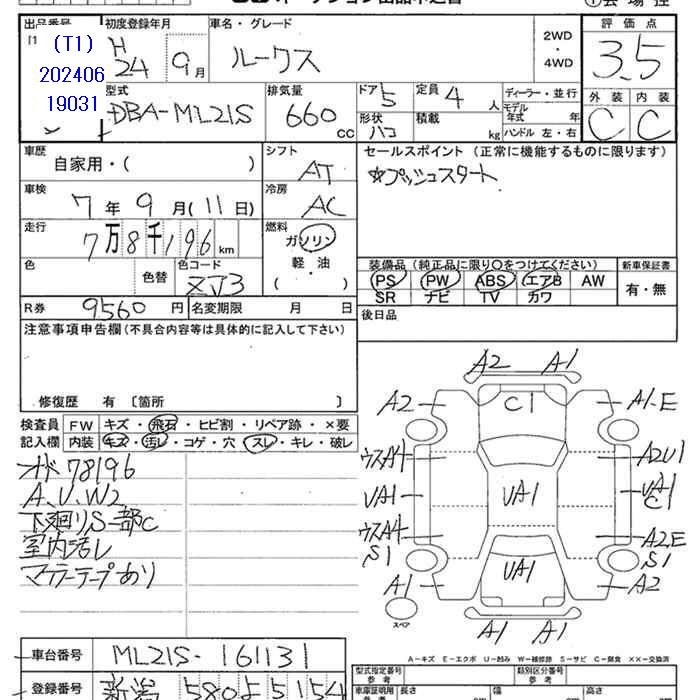 出品番号 初度登録年月 車名・グレード 評価点
(T1) H
202406 24 9月 ルークス 2WD ・ 4WD 3.5
19031
型式 排気量 ドア 5 定員 4 人 ディーラー・並行 外装 内装
DBA-ML21S 660 cc 形状 ハコ 積載 kg モデル年式 年 C C
ハンドル 左・右
車歴 シフト セールスポイント (正常に機能するものに限ります)
自家用・( ) AT ☆プッシュスタート
車検 冷房
7年 9月(11日) AC
走行 燃料
7万8千196km ガソリン
軽・油
( ・ )
色 色替 色コード 装備品 (純正品に限り○をつけてください) 新車保証書
ZJ3 PS PW ABS エアB AW 有・無
SR ナビ TV カワ
R券 9560円 名変期限 月 日 後日品
注意事項申告欄(不具合内容等は具体的に記入して下さい)
修復歴 有 〔箇所 〕
検査員 FW キズ・飛石・ヒビ割・リペア跡・×要
記入欄 内装 キズ・汚レ・コゲ・穴・スレ・キレ・破レ
オド78196
A、U、W2
下廻りS一部C
室内汚レ
マフラーテープあり
A2 A1
A2 C1 A1-E
ウスA4 A2U1
UA1 UA1 UA1
C1
ウスA4 A2E
S1 S1
A1 UA1 A2
スペア
A1 A1
A-キズ E-エクボ U-凹み W-補修跡 S-サビ C-腐食 ××-交換済
車台番号 ML21S-161131
登録番号 新潟 580 よ 5154
型式指定番号 類別区分番号
参考 参考
車庫証明用 長さ 幅 高さ
参考 cm cm cm